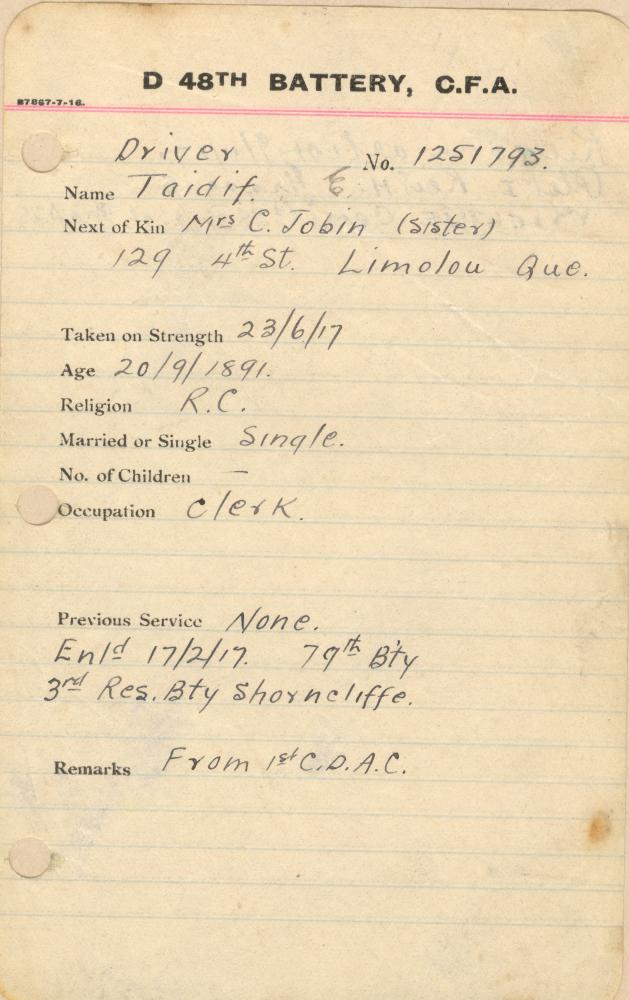 D 48TH BATTERY, C.F.A.
B7867-7-16.
Driver No. 1251793.
Name Taidif. E.
Next of Kin Mrs C. Jobin (sister)
129 4th St. Limolou Que.
Taken on Strength 23/6/17
Age 20/9/1891.
Religion R.C.
Married or Single Single.
No. of Children –
Occupation Clerk.
Previous Service None.
Enld 17/2/17. 79th Bty
3rd Res. Bty Shorncliffe.
Remarks From 1st C.D.A.C.